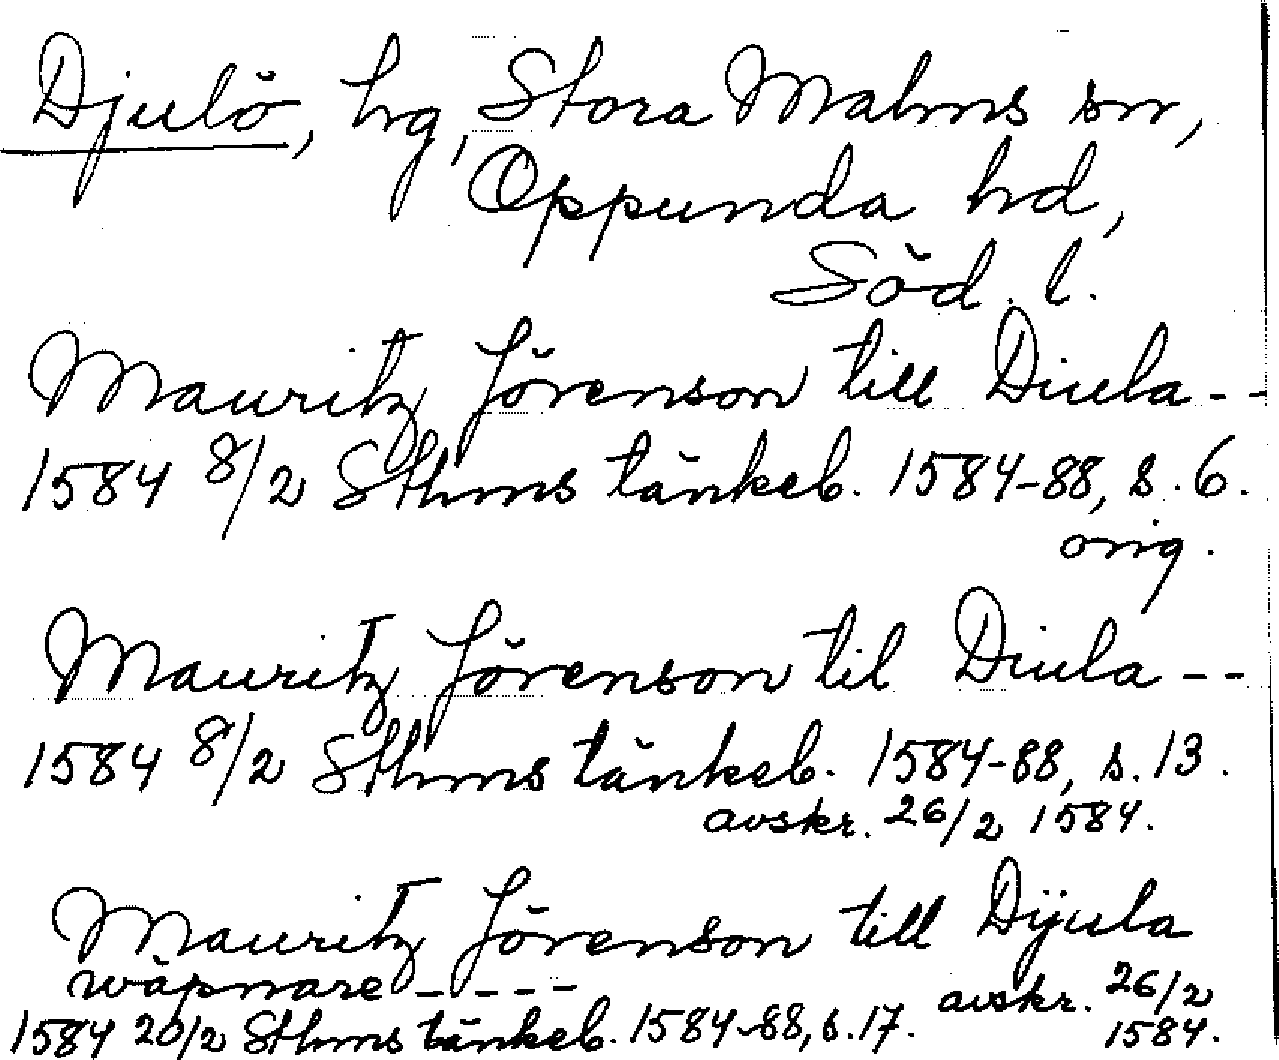 Djulö, hg, Stora Malms sn,
Oppunda hd,
Söd. l.
Mauritz Jörenson till Diula--
1584 8/2 Sthms tänkeb. 1584-88, s. 6.
orig.
Mauritz Jörenson til Diula--
1584 8/2 Sthms tänkeb. 1584-88, s. 13.
avskr. 26/2 1584.
Mauritz Jörenson till Dijula
wäpnare ----- avskr. 26/2
1584 20/2 Sthms tänkeb. 1584-88, s. 17. 1584.